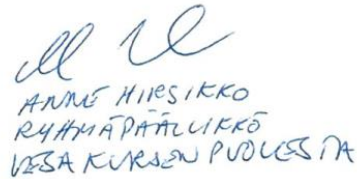 ANNE HIRSIKKO
RYHMÄPÄÄLLIKKÖ
VESA KURSEN PUOLESTA